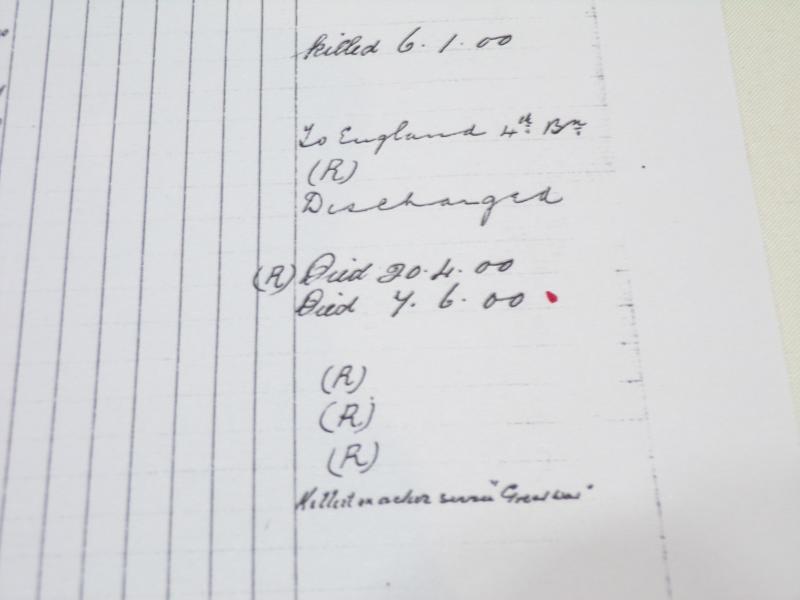 killed 6.1.00
To England 4th Bn
(R)
Discharged
(R) Died 20.4.00
Died 7.6.00
(R)
(R)
(R)
Killed in action "Great War"